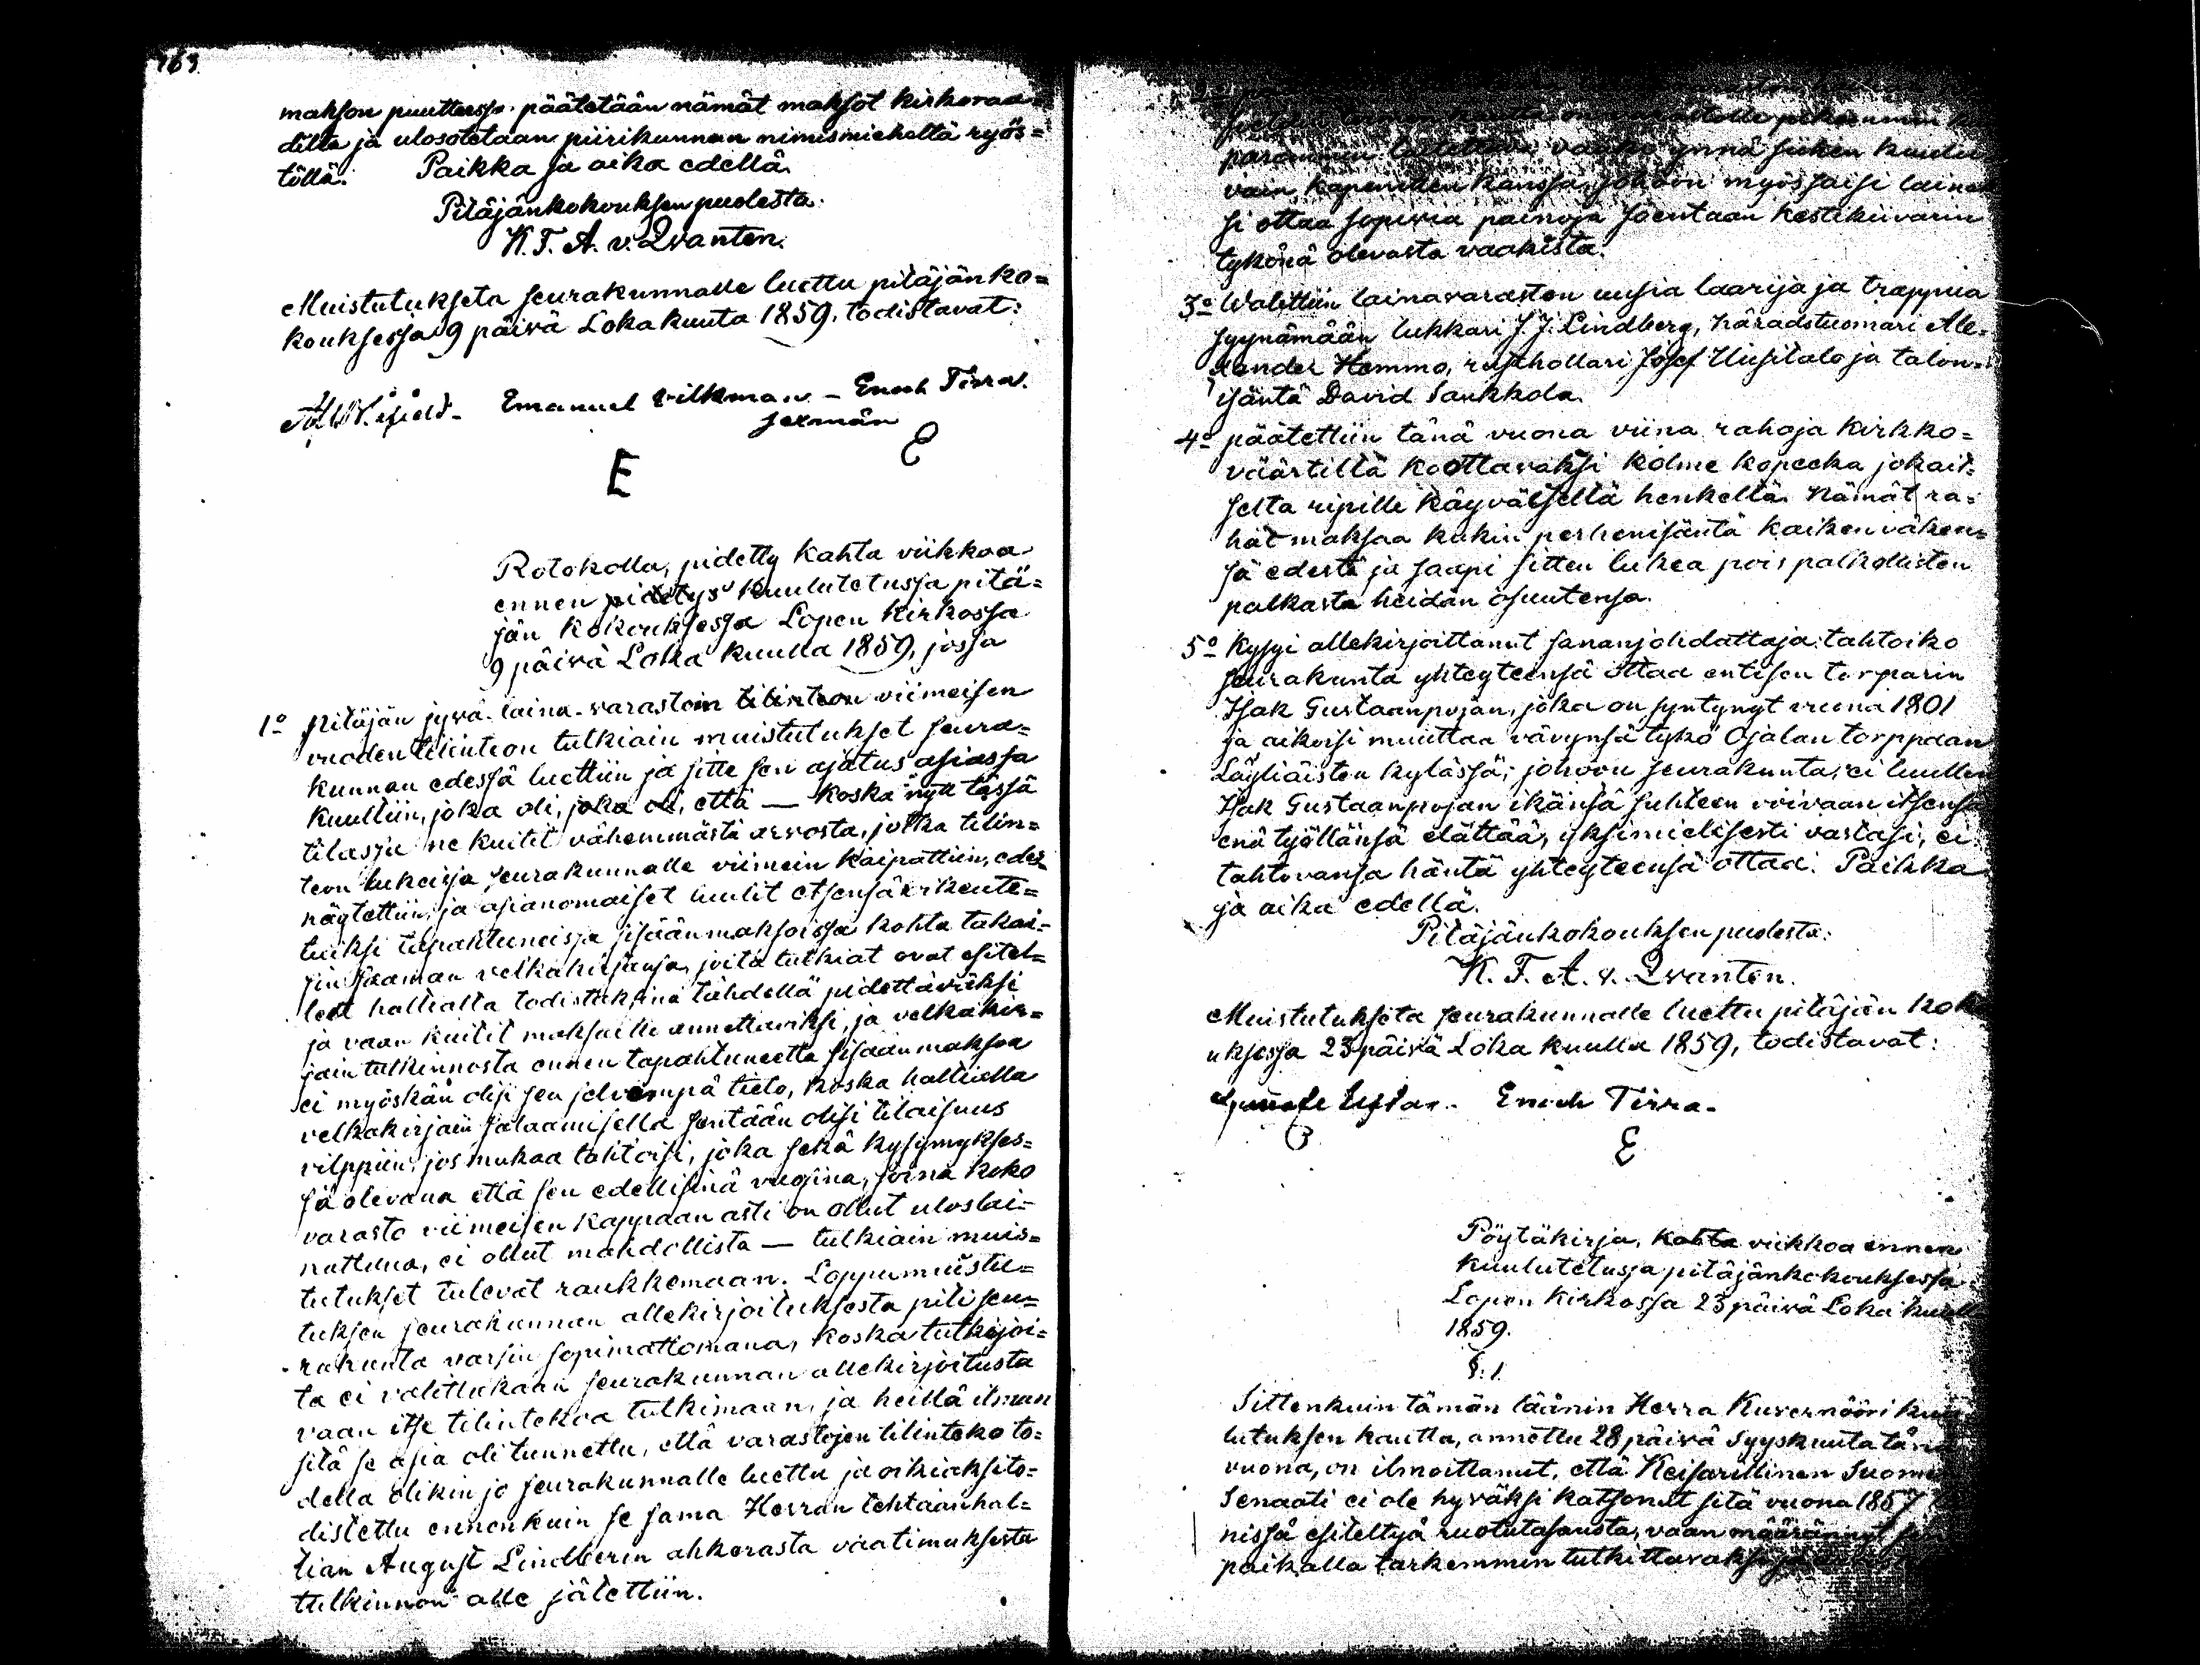 163.
makson puuttersa päätetään nämät maksot kirkoraa=
dilta ja ulosotetaan piirikunnan nimismieheltä ryös=
töllä. Paikka ja aika edellä.
Pitäjänkokouksen puolesta:
K. F. A. v. Qvanten.
Muistutukseta seurakunnalle luettu pitäjänko=
kouksessa 9 päivä Lokakuuta 1859. todistavat:
Emanuel Vilkman - Enok Tirra.
Jermän
E
E
Rotokolla, pidetty kahta viikkoa
ennen pidetys kuulutetussa pitä=
jän kokouksessa Lopen kirkossa
9 päivä Loka kuulla 1859, jossa
1º pitäjän jyvä-laina-varastoin tilinteon viimeisen
vuoden tilinteon tutkiain muistutukset seura=
kunnan edessä luettiin ja sitte sen ajatus asiassa
kuultiin, joka oli, joka oli, että — koska nyt tässä
tilassa ne kuitit vähemmästä arvosta, jotka tilin=
teon lukeissa seurakunnalle viimein kaipattiin, edes
näytettiin, ja asianomaiset luulit etsensä oikeute=
tuiksi tapahtuneissa sisäänmaksoissa kohta takai=
sin saaman velkakirjansa, joita tutkiat ovat esitel=
leet haltialta todistuksina tähdellä pidettäväksi
ja vaan kuitit maksaille annettaviksi, ja velkakir=
jain tutkinnosta ennen tapahtuneetta sisäänmaksoa
ei myöskän olisi sen selvempä tieto, koska haltiella
velkakirjain salaamisella sentään olisi tilaisuus
vilppiin, jos mukaa tahtoisi, joka sekä kysymykses=
sä olevana että sen edellisinä vuosina, joina koko
varasto viimeisen kappaan asti on ollut uloslai=
nattuna, ei ollut mahdollista — tutkiain muis=
tutukset tulevat raukkemaan. Loppumuistu=
tuksen seurakunnan allekirjoituksesta piti seu=
rakunta varsin sopimattomana, koska tutkijoi=
ta ei valittukaan seurakunnan allekirjoitusta
vaan itse tilintekoa tutkimaan, ja heillä ilman
sitä se asia oli tunnettu, että varastojen tilinteko to=
della olikin jo seurakunnalle luettu ja oikiaksito=
distettu ennenkuin se sama Herran tehtaanhal=
tian August Lindberin ahkerasta vaatimuksesta
tutkinnon alle jätettiin.
parammin vaaka ynnä siihen kuulu
vain kapeneiden kanssa, johoon myös saisi laina
si ottaa sopivia painoja Joentaan kestikiivarin
tykönä olevasta vaakista.
3º Walittiin lainavaraston uusia laarija ja trappuia
syynämään lukkari J. J. Lindberg, häradstuomari Ale=
xander Hemmo, rusthollari Josef Uusitalo ja talon=
isäntä David Saukkola.
4º päätettiin tänä vuona viina rahoja kirkko=
väärtillä koottavaksi kolme kopeeka jokait=
selta ripille käyväisellä henkellä. Nämät ra=
hat maksaa kukin perhenisäntä kaiken väken=
sä edestä ja saapi sitten lukea pois palkollisten
palkasta heidän osuutensa.
5º kysyi allekirjoittanut sananjohdattaja: tahtoiko
seurakunta yhteyteensä ottaa entisen torparin
Isak Gustaanpojan, joka on syntynyt vuona 1801
ja aikoisi muuttaa vävynsä tykö Ojalan torppaan
Läyliäisten kylässä; johoon seurakunta, ei luullen
Isak Gustaanpojan ikänsä suhteen voivaan itsensä
enä työllänsä elättää, yksimielisesti vastasi, ei
tahtovansa häntä yhteyteensä ottaa. Paikka
ja aika edellä.
Pitäjänkokouksen puolesta:
K. F. A. v. Qvanten.
Muistutuksita seurakunnalle luettu pitäjän kok
uksessa 23 päivä Loka kuulla 1859, todistavat:
Enoch Tirra.
E
Pöytäkirja, kahta viikkoa ennen
kuulutetussa pitäjänkokouksessa
Lopen kirkossa 23 päivä Loka kuull
1859.
§: 1.
Sittenkuin tämän läänin Herra Kuvernööri kuu
lutuksen kautta, annettu 28 päivä Syyskuuta tänä
vuona, on ilmoittanut, että Keisarillinen Suomen
Senaati ei ole hyväksi katsonut sitä vuona 1857
nissä esiteltyä ruotutasausta, vaan määrännyt sen
paikalla tarkemmin tutkittavaksi